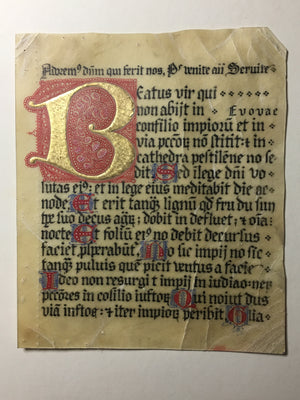 Adorem⁹ dn̄m qui fecit nos, Pˢ venite aū Seruite
Beatus vir qui
non abijt in Evovae
consilio impiorū et in
via pccōꝝ nō stetit: et in
cathedra pestilēne no se
dit Sed ī lege dn̄i vo
lutas ei⁹: et in lege eius meditabit die ac
node Et erit tanq̄ lignū qd̄ fru du sun
suo decus aq̄ꝝ: dabit in
nocte Et foliū er⁹ no defluet decursus
faciet psperabūt, No sic impij no sic
tanq̄ puluis que picit ventus a facie
Ideo non resurgūt impij in iudiao: neꝝ
pccōres in cōsilio iustoꝝ Qm̄ noiut dus
viā iustoꝝ: et iter impioꝝ peribit Glia